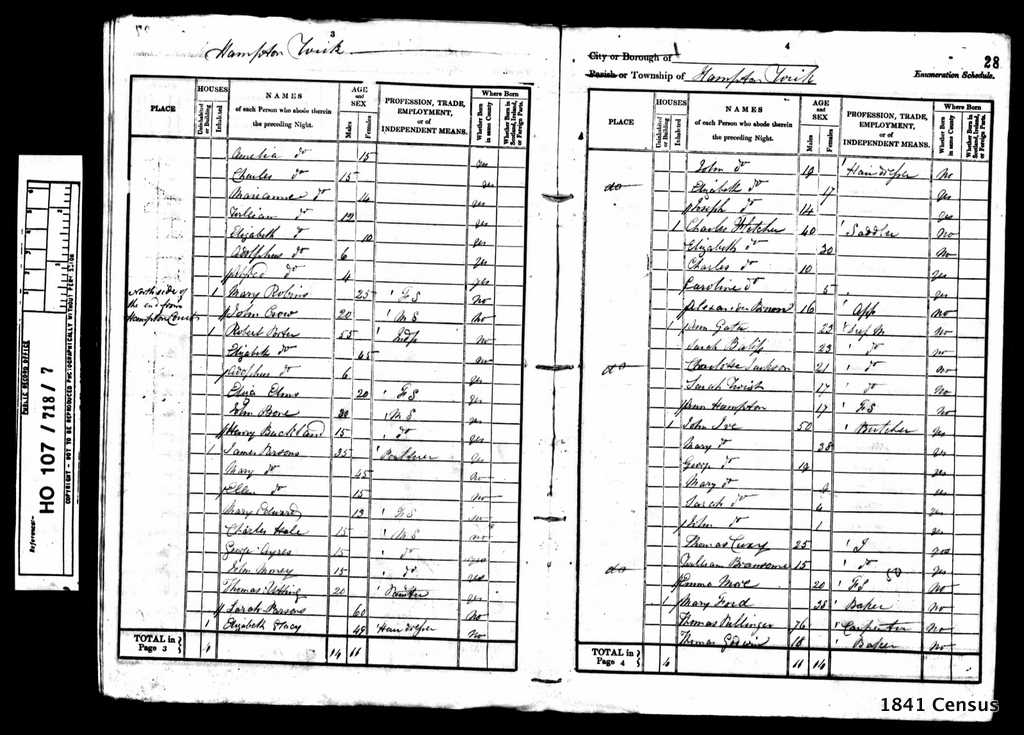 3
Hampton Wick
HOUSES
AGE and SEX
Where Born
PLACE
Uninhabited or Building
Inhabited
NAMES of each Person who abode therein the preceding Night.
Males
Females
PROFESSION, TRADE, EMPLOYMENT, or of INDEPENDENT MEANS.
Whether Born in same County
Whether Born in Scotland, Ireland, or Foreign Parts.
Amelia do 15 yes
Charles do 15 yes
Marianne do 14 yes
William do 12 yes
Elizabeth do 10 yes
Adolphus do 6 yes
Alfred do 4 yes
North side of the end from Hampton Court
1 Mary Robins 25 F S No
John Crow 20 M S No
1 Robert Porter 55 Indp No
Elizabeth do 45 No
Adolphus do 6 yes
Eliza Elms 20 F S yes
John Bone 20 M S yes
Henry Buckland 15 do yes
1 James Parsons 35 yes
Mary do 45 No
Ellen do 15 No
Mary 13 F S
Charles Hale 15 M S no
George Ayres 15 do yes
John 15 do yes
Thomas 20 yes
Sarah Parsons 60 No
1 Elizabeth Stacy 49 No
TOTAL in Page 3 } 4 14 11
4
28
City or Borough of
Parish or Township of Hampton Wick
Enumeration Schedule.
HOUSES
AGE and SEX
Where Born
PLACE
Uninhabited or Building
Inhabited
NAMES of each Person who abode therein the preceding Night.
Males
Females
PROFESSION, TRADE, EMPLOYMENT, or of INDEPENDENT MEANS.
Whether Born in same County
Whether Born in Scotland, Ireland, or Foreign Parts.
John do 19 No
do Elizabeth do 17 yes
Joseph do 14 yes
1 Charles Fletcher 40 Saddler no
Elizabeth do 30 No
Charles do 10 yes
Caroline do 5 yes
Alexander 16 App no
1 Ann 23 No
Sarah 23 do no
do Charlotte Jackson 21 do no
Sarah 17 do No
Ann Hampton 17 F S No
1 John Ive 50 Butcher yes
Mary do 38 yes
George do yes
Mary do yes
Sarah do yes
John do 1 yes
Thomas 25 J yes
do William 15 do yes
50
Emma 20 F S No
1 Mary Ford 38 Baker No
Thomas 76 Carpenter No
Thomas Godwin 18 Baker No
TOTAL in Page 4 } 4 11 14
PUBLIC RECORD OFFICE
Reference:-
HO 107/718/7
COPYRIGHT - NOT TO BE REPRODUCED PHOTOGRAPHICALLY WITHOUT PERMISSION
1841 Census